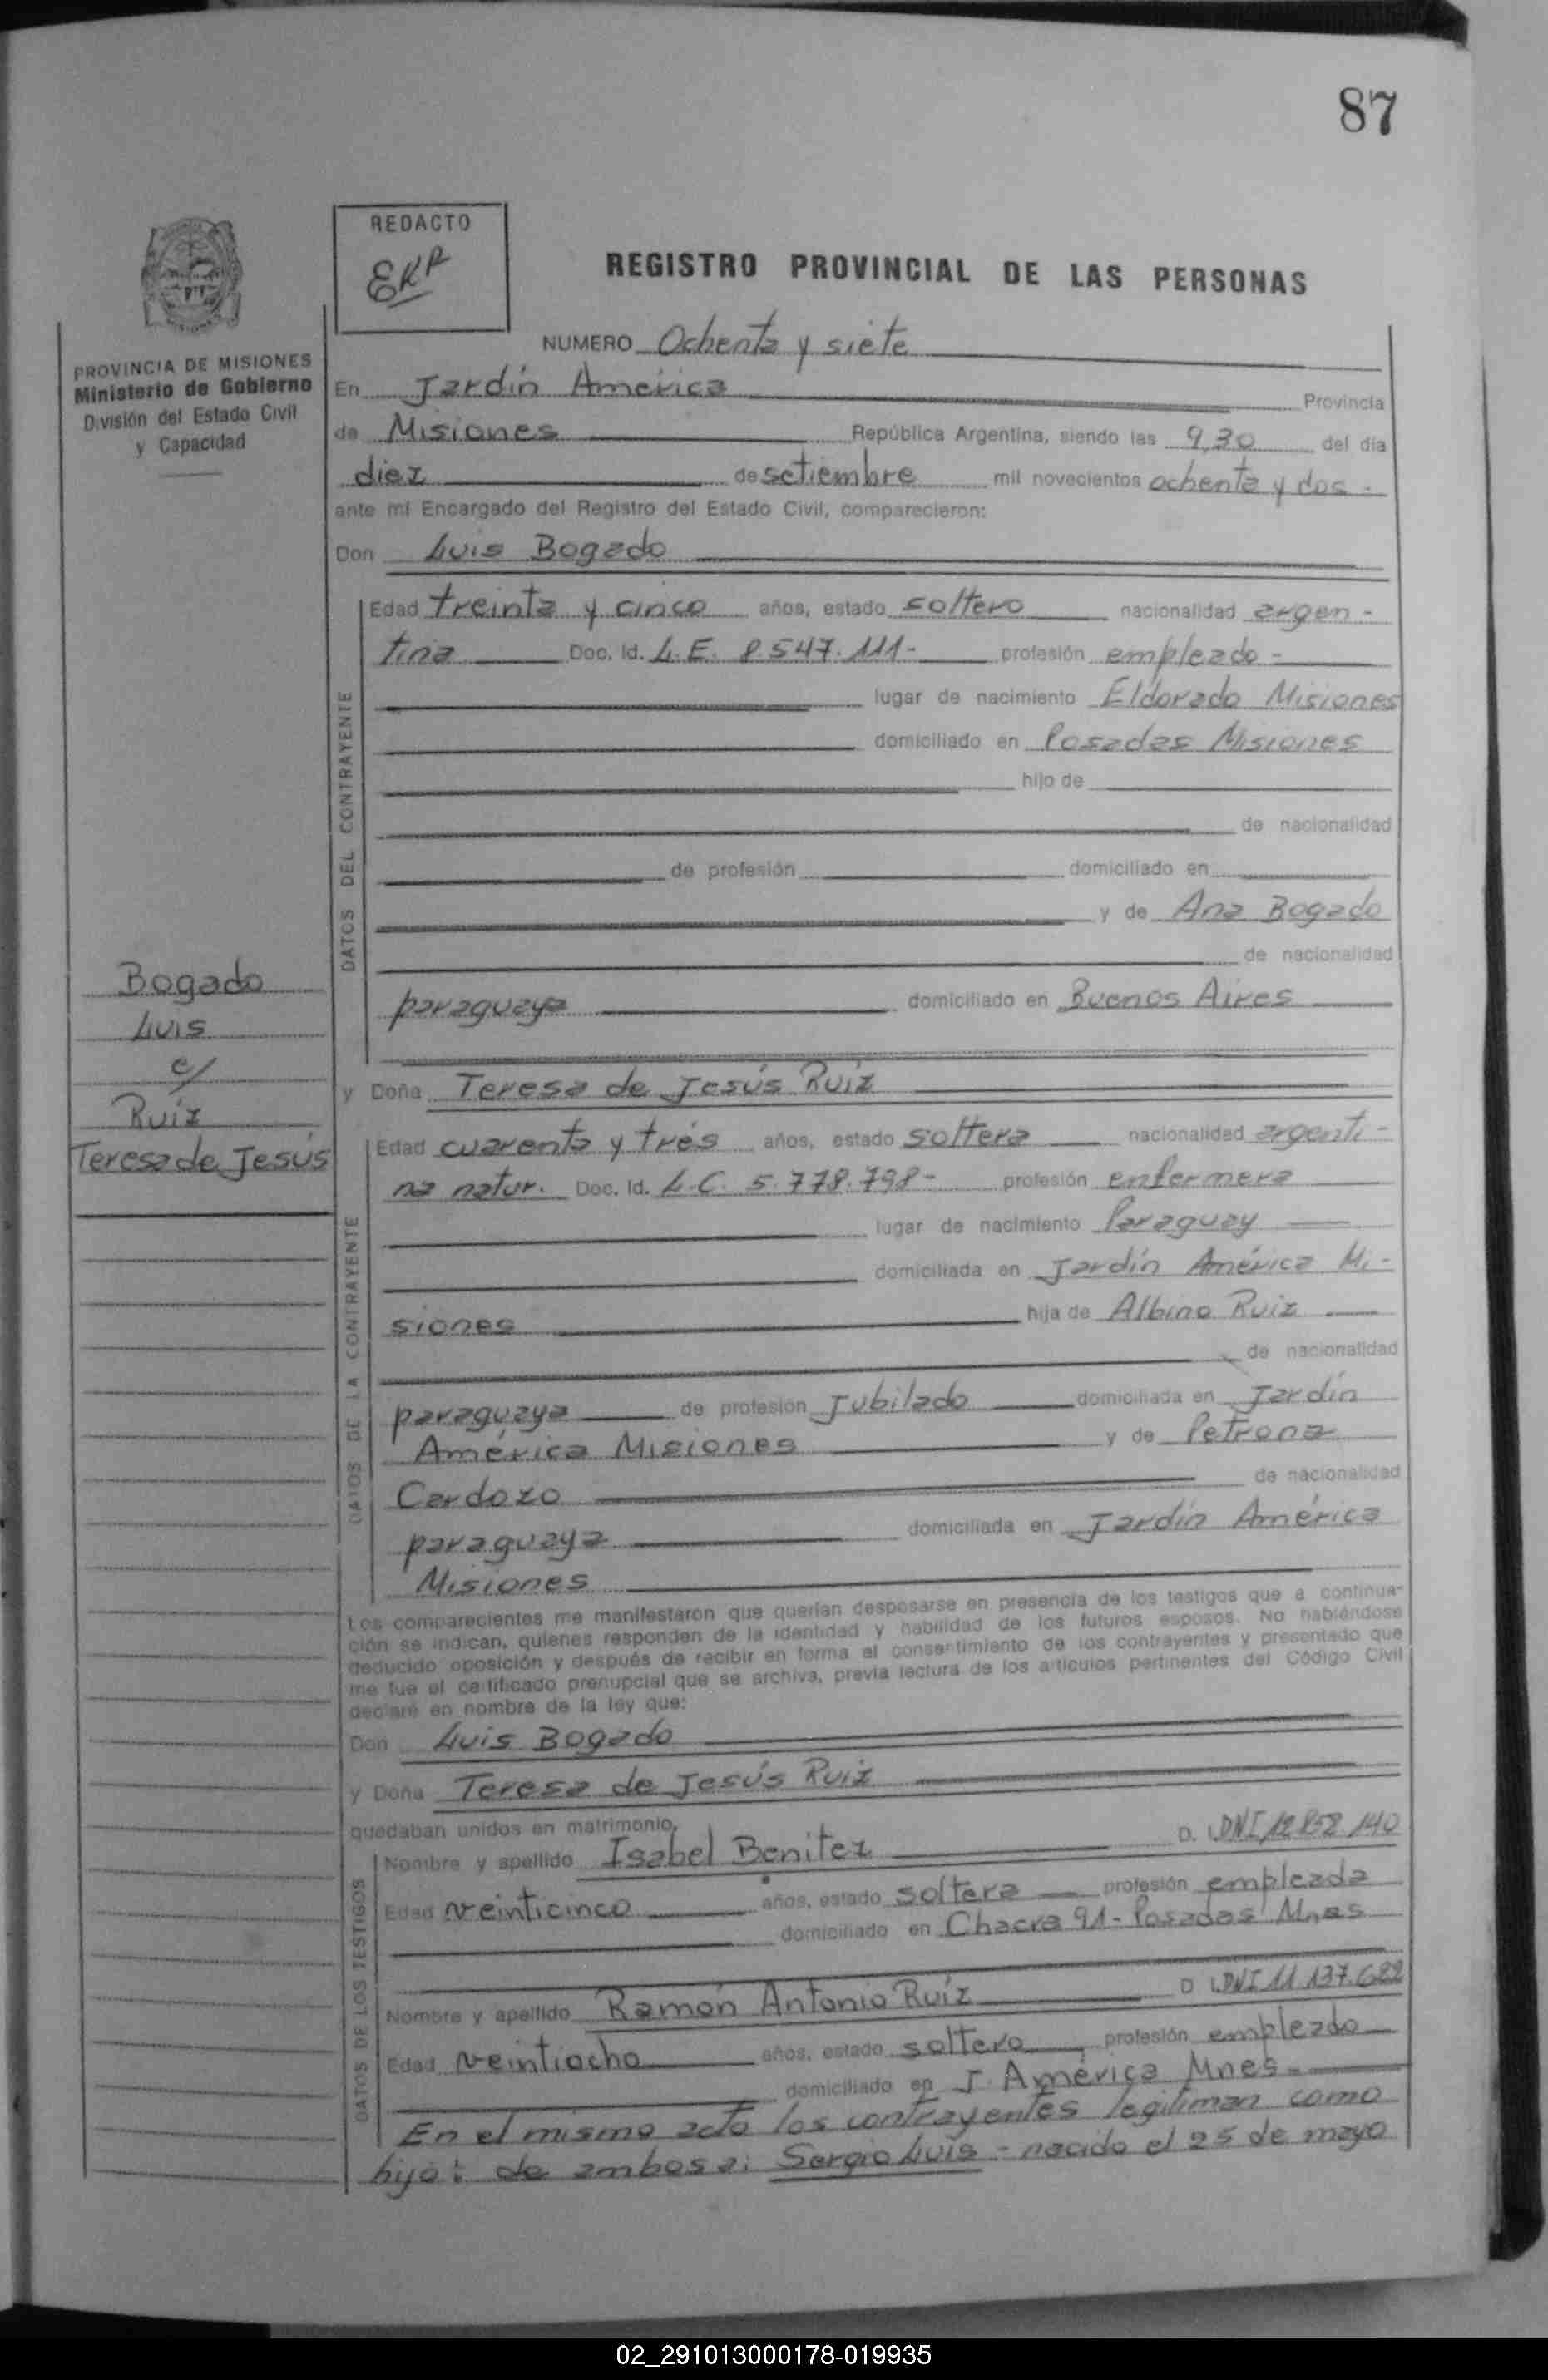 87
REDACTO
EKR
REGISTRO PROVINCIAL DE LAS PERSONAS
PROVINCIA DE MISIONES
Ministerio de Gobierno
División del Estado Civil
y Capacidad
NUMERO Ochenta y siete
En Jardín América Provincia
de Misiones República Argentina, siendo las 9,30 del día
diez de setiembre mil novecientos ochenta y dos.
ante mí Encargado del Registro del Estado Civil, comparecieron:
Don Luis Bogado
DATOS DEL CONTRAYENTE
Edad treinta y cinco años, estado soltero nacionalidad argen-
tina Doc. Id. L.E. 8.547.111- profesión empleado-
lugar de nacimiento Eldorado Misiones
domiciliado en Posadas Misiones
hijo de
de nacionalidad
de profesión domiciliado en
y de Ana Bogado
de nacionalidad
paraguaya domiciliado en Buenos Aires
Bogado
Luis
c/
Ruíz
Teresa de Jesús
y Doña Teresa de Jesús Ruíz
DATOS DE LA CONTRAYENTE
Edad cuarenta y trés años, estado soltera nacionalidad argenti-
na natur. Doc. Id. L.C. 5.778.798- profesión enfermera
lugar de nacimiento Paraguay
domiciliada en Jardín América Mi-
siones hija de Albino Ruiz
de nacionalidad
paraguaya de profesión Jubilado domiciliada en Jardín
América Misiones y de Petrona
Cardozo de nacionalidad
paraguaya domiciliada en Jardín América
Misiones
Los comparecientes me manifestaron que querían desposarse en presencia de los testigos que a continua-
ción se indican, quienes responden de la identidad y habilidad de los futuros esposos. No habiéndose
deducido oposición y después de recibir en forma el consentimiento de los contrayentes y presentado que
me fue el certificado prenupcial que se archiva, previa lectura de los artículos pertinentes del Código Civil
declaré en nombre de la ley que:
Don Luis Bogado
y Doña Teresa de Jesús Ruiz
quedaban unidos en matrimonio.
DATOS DE LOS TESTIGOS
Nombre y apellido Isabel Benitez D. I. DNI 12.852.140
Edad veinticinco años, estado soltera profesión empleada
domiciliado en Chacra 91- Posadas Mnes
Nombre y apellido Ramón Antonio Ruíz D I. DNI 11.137.622
Edad veintiocho años, estado soltero profesión empleado
domiciliado en J. América Mnes.
En el mismo acto los contrayentes legitiman como
hijo: de ambos a: Sergio Luis - nacido el 25 de mayo
02_291013000178-019935